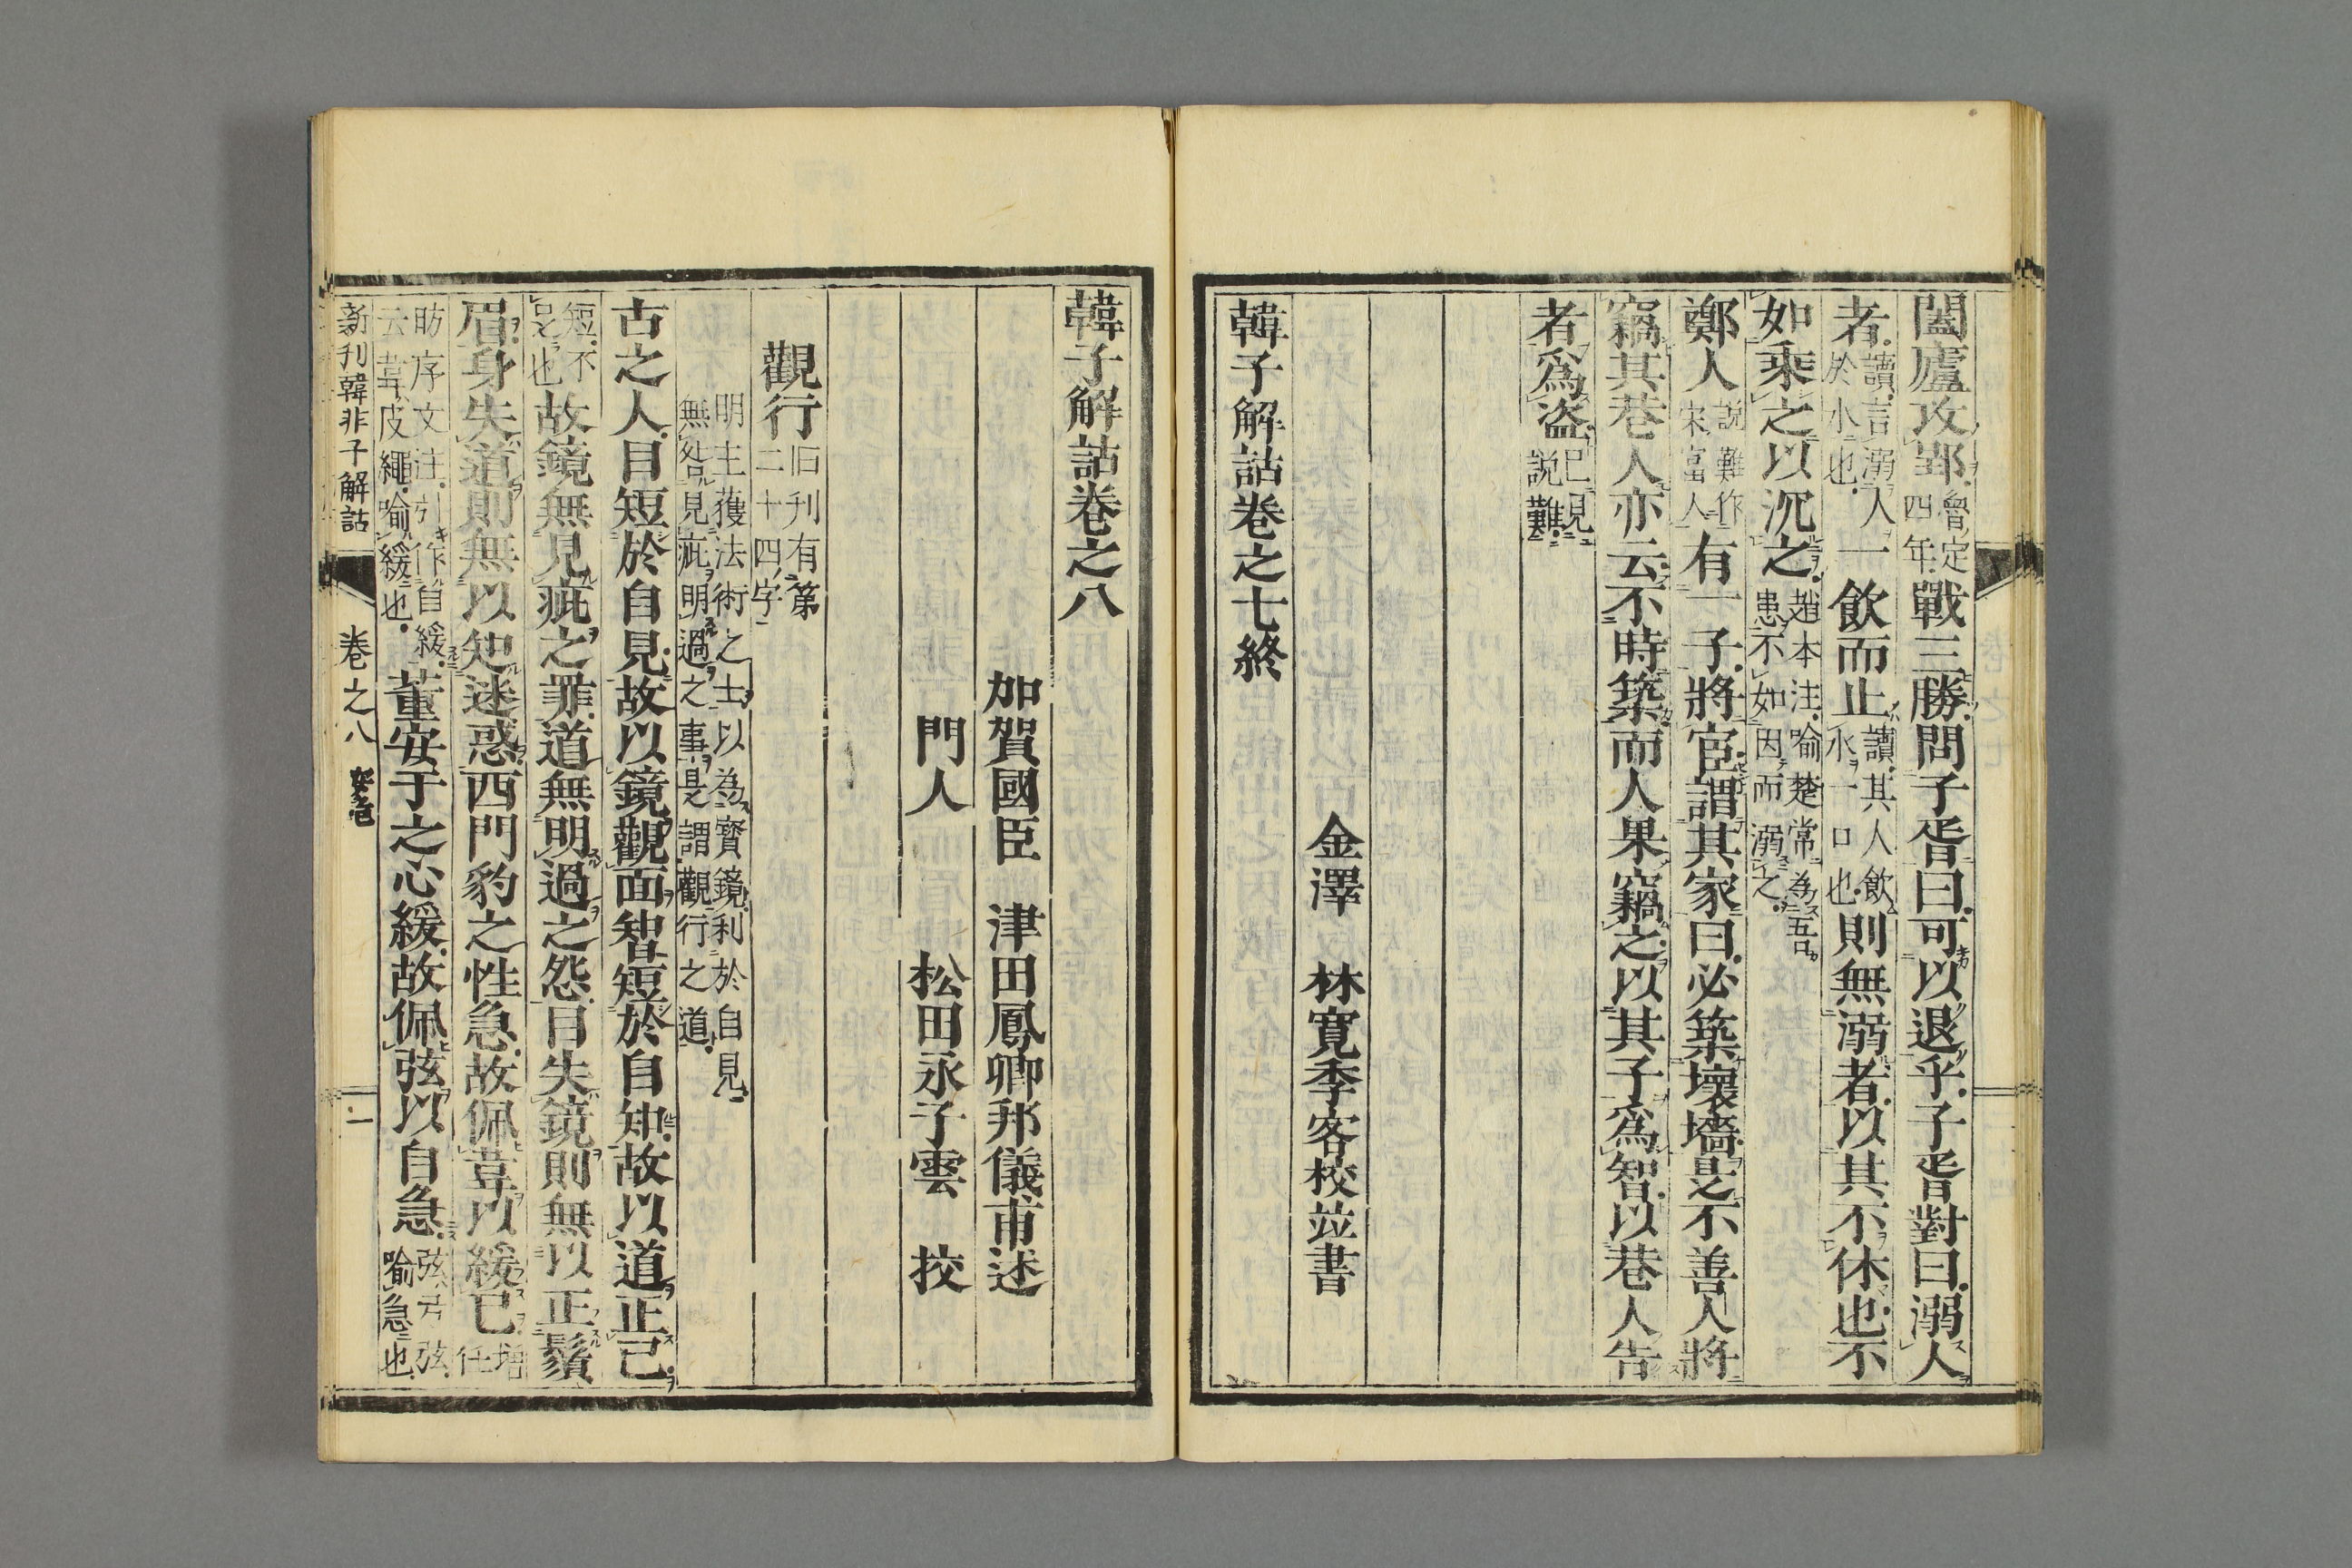 闔廬攻郢魯定四年戰三勝問子胥曰可以退乎子胥對曰溺人
者讀言溺人於小也一飲而止讀其人飲水一口也則無溺者以其不休也不
如乘之以沉之趙本注喻楚常為吾患不如因而溺之
鄭人説難作宋富人有一子將宦謂其家曰必築壞墻是不善人將
竊其巷人亦云不時築而人果竊之以其子爲智以巷人告
者爲盗已見説難
金澤 林寛季客校竝書
韓子解詁卷之七終
韓子解詁卷之八
加賀國臣 津田鳳卿邦儀甫述
門人 松田永子雲 挍
觀行旧刊有第二十四字
明主獲法術之士以為寳鏡利於自見
無咎見疵明過之事是謂觀行之道
古之人目短於自見故以鏡觀面智短於自知故以道正己
短不足也故鏡無見疵之罪道無明過之怨目失鏡則無以正鬚
眉身失道則無以知迷惑西門豹之性急故佩韋以緩己増任
昉序文注引作自緩云韋皮繩喻緩也董安于之心緩故佩弦以自急弦弓弦喻急也
新刊韓非子解詁 卷之八 一